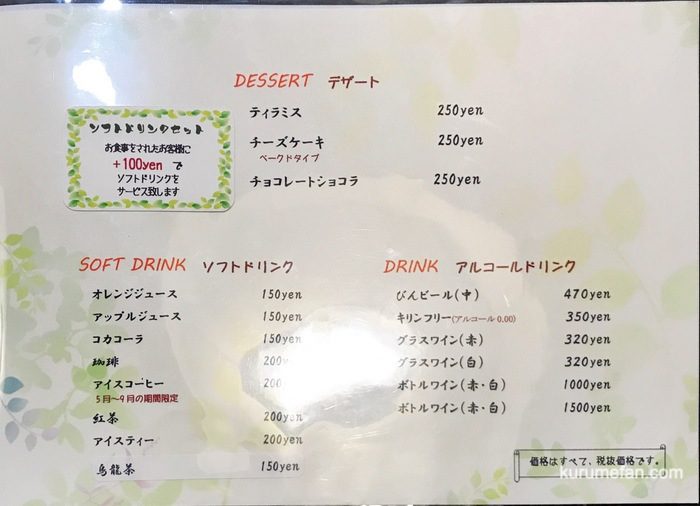 DESSERT デザート
ティラミス 250yen
チーズケーキ 250yen
ベークドタイプ
チョコレートショコラ 250yen
ソフトドリンクセット
お食事をされたお客様に
+100yen で
ソフトドリンクを
サービス致します
SOFT DRINK ソフトドリンク
オレンジジュース 150yen
アップルジュース 150yen
コカコーラ 150yen
珈琲 200yen
アイスコーヒー 200
5月〜9月の期間限定
紅茶 200yen
アイスティー 200yen
烏龍茶 150yen
DRINK アルコールドリンク
びんビール(中) 470yen
キリンフリー(アルコール 0.00) 350yen
グラスワイン(赤) 320yen
グラスワイン(白) 320yen
ボトルワイン(赤・白) 1000yen
ボトルワイン(赤・白) 1500yen
価格はすべて、税抜価格です。
kurumefan.com